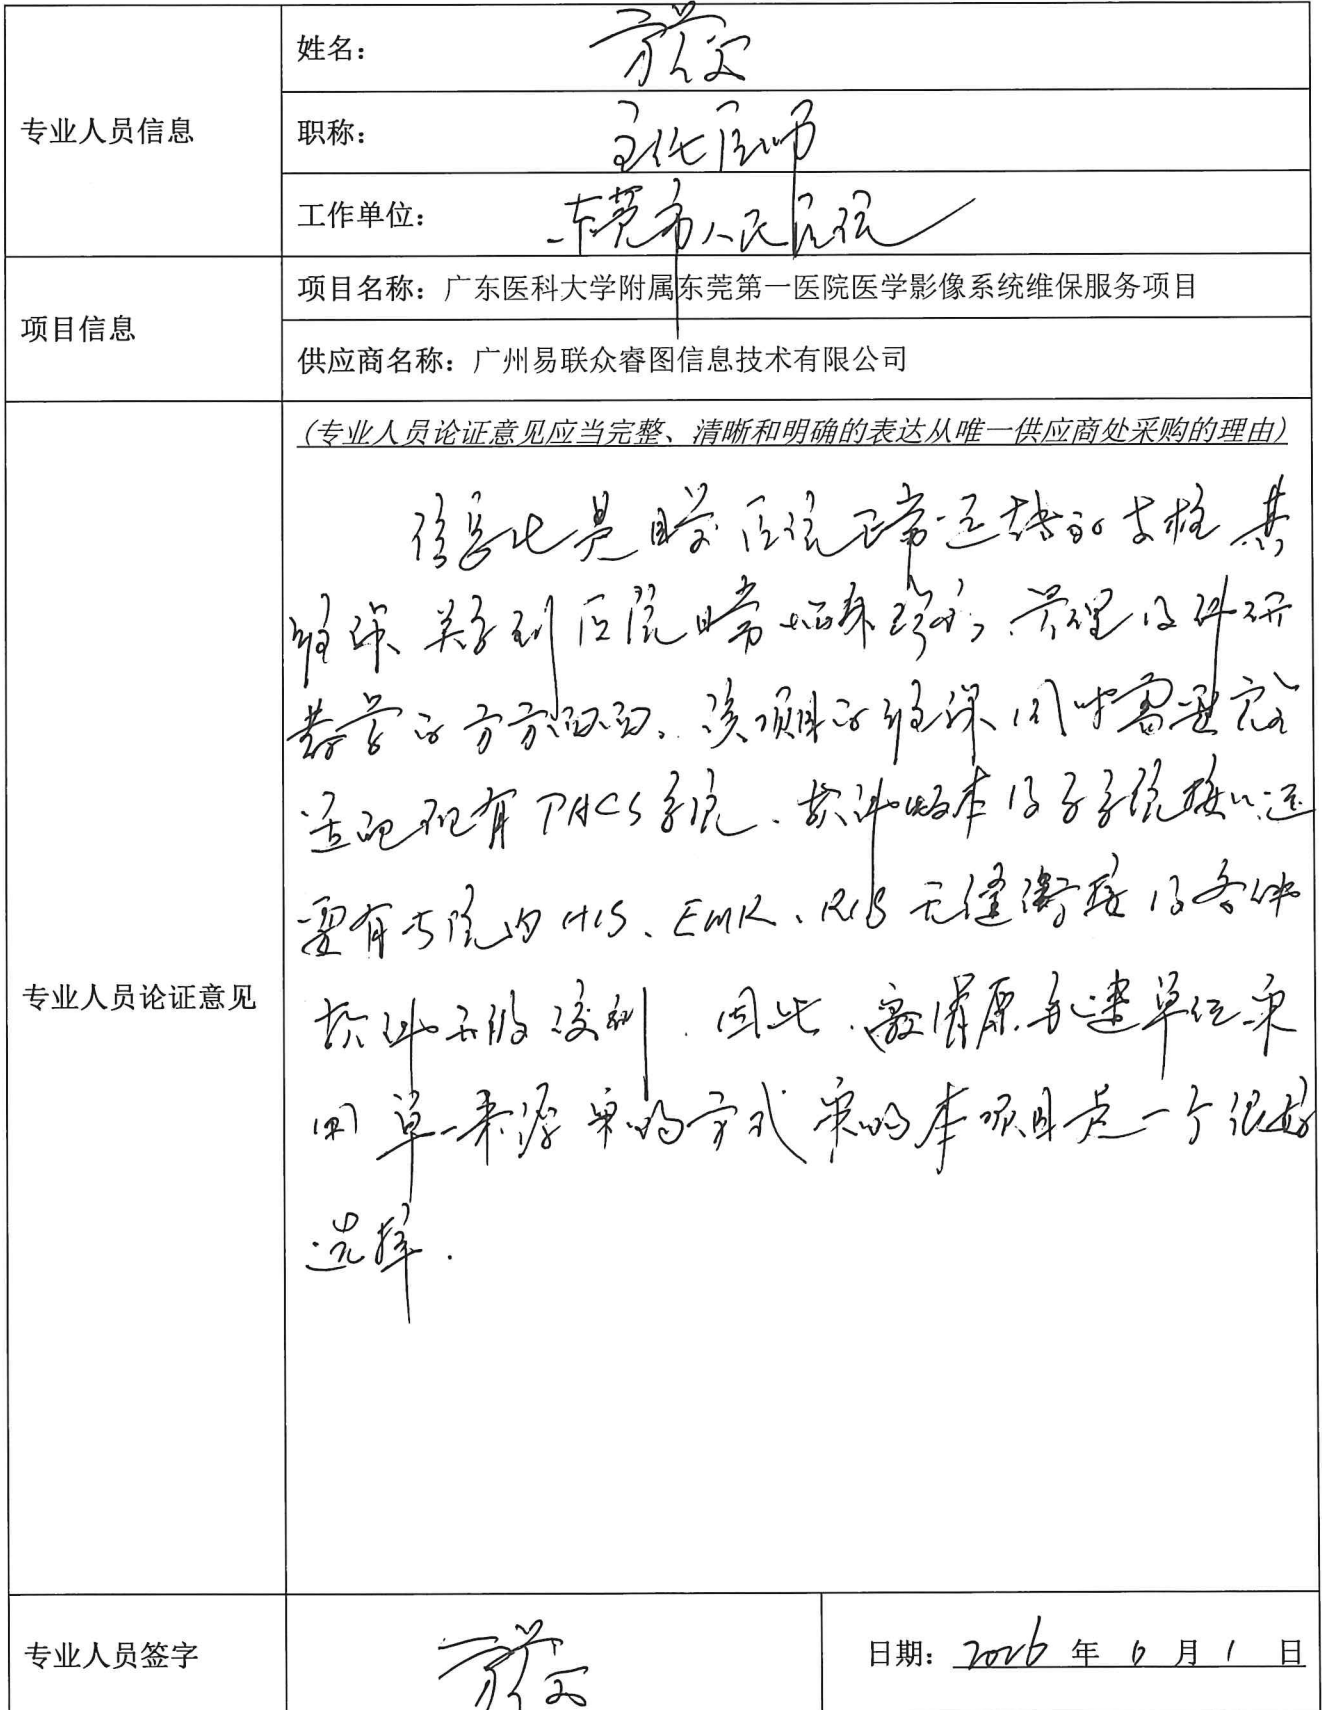 专业人员信息
姓名：
职称： 主任医师
工作单位： 东莞市人民医院
项目信息
项目名称：广东医科大学附属东莞第一医院医学影像系统维保服务项目
供应商名称：广州易联众睿图信息技术有限公司
专业人员论证意见
（专业人员论证意见应当完整、清晰和明确的表达从唯一供应商处采购的理由）
信息化是目前医院正常运转的支柱 其
维保关系到医院日常临床诊疗、管理及科研
教学的方方面面。该项目的维保同时需要完全
适配现有PACS系统、软件版本及子系统接口，还
要有与院内HIS、EMR、RIS无缝衔接及各种
软件升级 因此，邀请原承建单位采
用单一来源采购方式采购本项目是一个很好
选择.
专业人员签字
日期： 2026 年 6 月 1 日